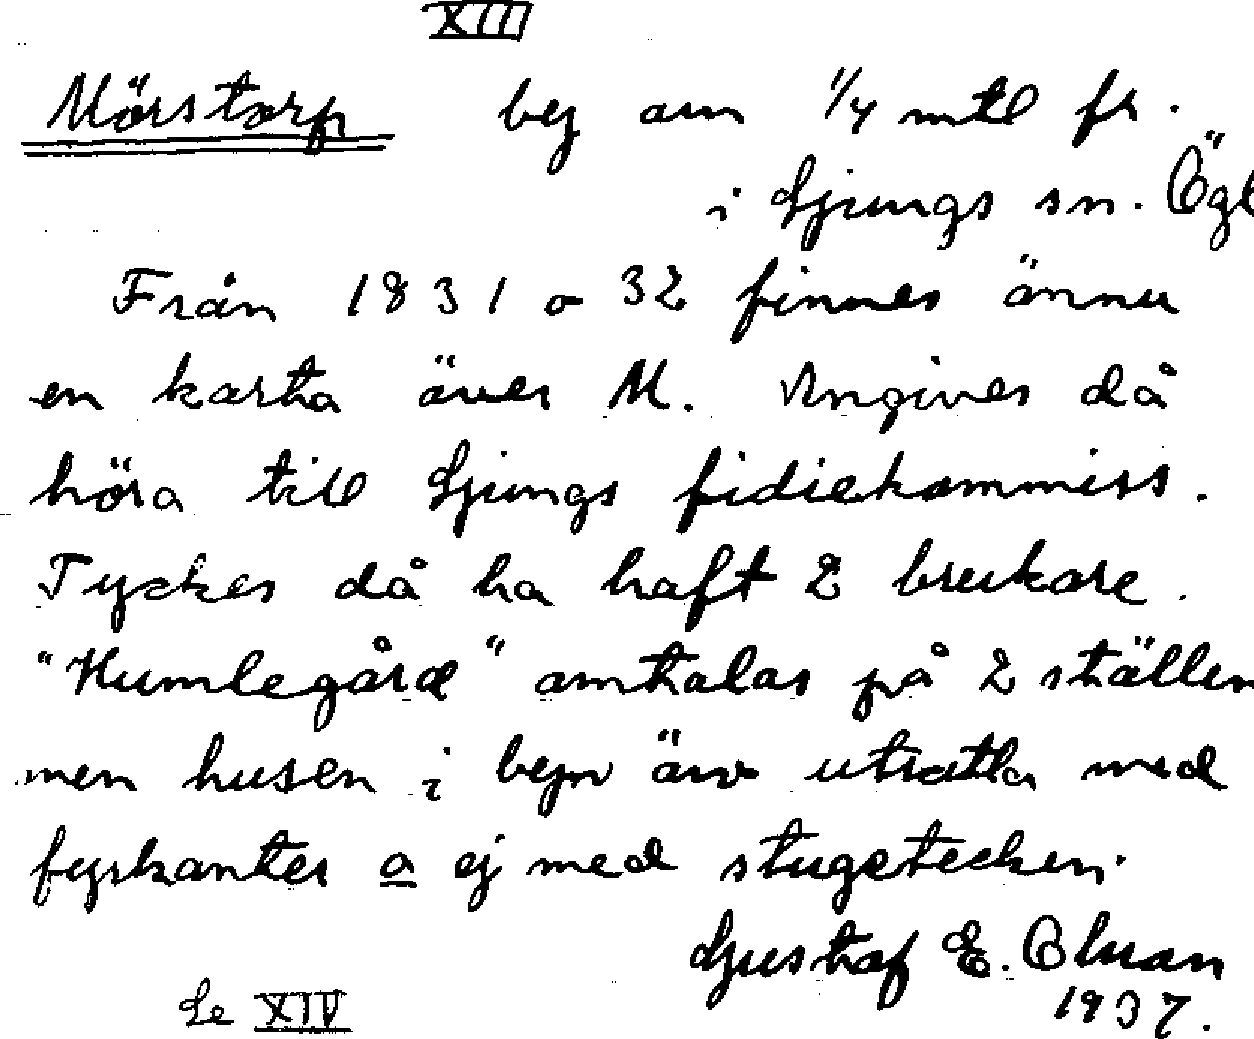 XIII
Mörstorp by om 1/4 mtl fr.
i Ljungs sn. Ögl
Från 1831 o 32 finnes ännu
en karta över M. Angives då
höra till Ljungs fidiekommiss.
Tyckes då ha haft 2 brukare.
"Humlegård" omtalas på 2 ställen
men husen i byn äro utsatta med
fyrkanter o ej med stugetecken.
Gustaf E. Olson
1937.
Se XIV